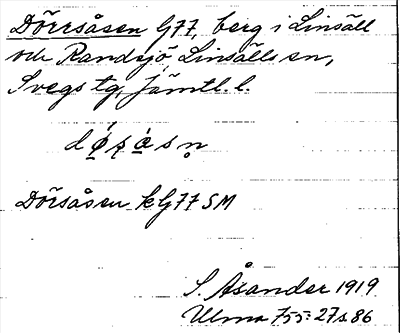 Dörrsåsen G77, berg i Linsäll
och Randsjö, Linsälls sn,
Svegs tg, Jämtl. l.
Dörsåsen kG77 SM
S. Åsander 1919
Ulma 755:27 s.86